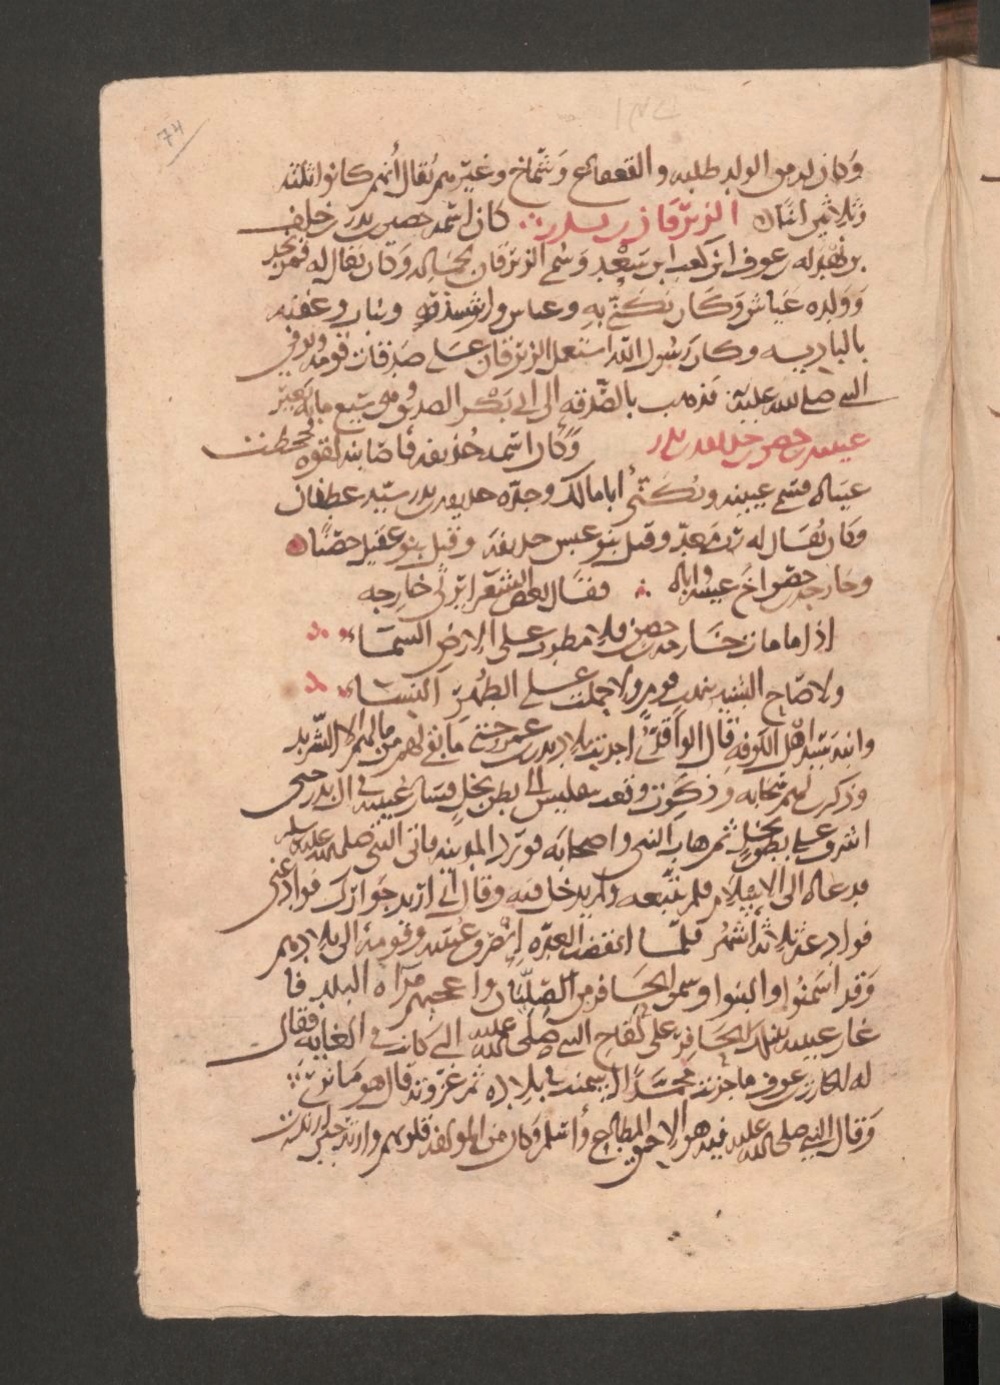 74
وكان له من الولد طلبه والقعقاع وشماخ وغيرهم يقال أنهم كانوا ثلثه
وثلاثين انسان الزبرقان بن بدر كان اسمه حصين بن بدر بن خلف
بن بهدله بن عوف ابن كعب ابن سعد وسمي الزبرقان بجماله وكان يقال له قمر نجد
وولده عياش وكان يكنى به وعباس و وبنان وعقبه
بالباديه وكان رسول الله استعمل الزبرقان على صدقات قومه وتوفي
النبي صلى الله عليه فذهب بالصدقه الى ابي بكر الصديق وهي سبع مايه بعير
عيينه بن حصن بن حذيفه بن بدر وكان اسمه حذيفه فاصابته لقوه فجحظت
عيناه فسمي عيينه ويكنى أبا مالك وجدّه حذيفه بن بدر سيّد غطفان
وكان يقال له ربّ معدّ وقتل بنو عبس حذيفه وقتل بنو عقيل حصنا
وخارجه بن حصن اخ عيينه واباه فقال بعض الشعرا يرثي خارجه
اذا ما مات خارجه بن حصن فلا مطرت على الارض السماء
ولا صاح البشير بغنم قوم ولا حملت على الطهر النساء
وابنه سيد اهل الكوفه قال الواقدي اجدبت بلاد بدر بن عمر حتى ما بقي لهم من مالهم الا الشريد
وذكرت لهم سحابه وقعت بتغلمين الى بطن نخل فسار عيينه في ال بدر حتى
اشرف على بطن نخل ثم هاب النبي واصحابه فورد المدينه فاتى النبي صلى الله عليه وسلم
فدعاه الى الاسلام فلم يتبعه ولم يدخل فيه وقال اني اريد جوارك فوادعني
فوادعه ثلاثة أشهر فلمّا انقضت العدّه انصرف عيينه وقومه الى بلادهم
وقد اسمنوا والبنوا وسمن الحافر من الصلّيان واعجبهم مرآه البلد فا
غار عيينه بذلك الحافر على لقاح النبي صلى الله عليه التي كانت في الغابه فقال
له الحارث بن عوف ما جزيت محمّدًا اسمنت في بلاده ثم غزوته قال هو ما ترى
وقال النبي صلى الله عليه فيه هو الاحمق المطاع وأسلم وكان من المولفه قلوبهم وارتد حين ارتدت